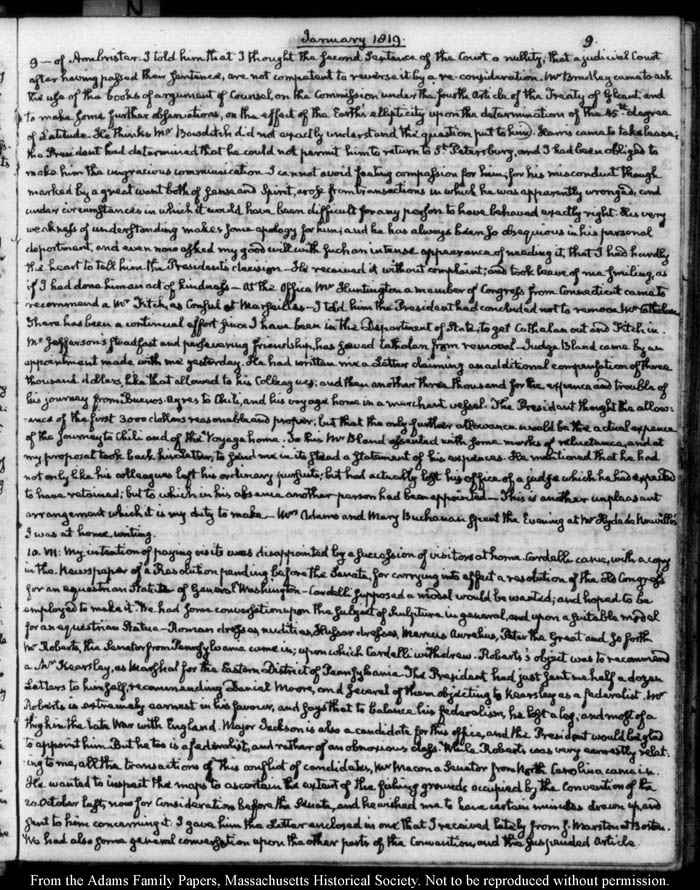 January 1819. 9.
9— of Ambrister. I told him that I thought the second Sentence of the Court a nullity, that a judicial Court
after having passed their Sentence, are not competent to reverse it by a re-consideration. Mr Bradley came to ask
the use of the books of argument of Counsel, on the Commission under the fourth Article of the Treaty of Ghent, and
to make some further observations, on the effect of the Earth's ellipticity upon the determination of the 45th degree
of Latitude. He thinks Mr Bowditch did not exactly understand the question put to him. Harris came to take leave;
the President had determined that he could not permit him to return to St. Petersburg, and I had been obliged to
make him the ungracious communication. I cannot avoid feeling compassion for him; for his misconduct though
marked by a great want both of sense and Spirit, arose from transactions in which he was apparently wronged, and
under circumstances in which it would have been difficult for any person to have behaved exactly right. His very
weakness of understanding makes some apology for him; and he has always been so obsequious in his personal
deportment, and even now asked my good will with such an intense appearance of needing it, that I had hardly
the heart to tell him the President's decision— He received it without complaint; and took leave of me smiling, as
if I had done him an act of kindness— At the Office Mr Huntington a member of Congress from Connecticut came to
recommend a Mr Fitch, as Consul at Marseilles— I told him the President had concluded not to remove Mr Cathalan.
There has been a continual effort since I have been in the Department of State, to get Cathalan out and Fitch in.
Mr Jefferson's steadfast and persevering friendship, has saved Cathalan from removal. Judge Bland came by an
appointment made with me yesterday. He had written me a Letter claiming an additional compensation of three
thousand dollars, like that allowed to his Colleagues; and then another three thousand for the expence and trouble of
his journey from Buenos-Ayres to Chili, and his voyage home in a merchant vessel. The President thought the allow-
ance of the first 3000 dollars reasonable and proper; but that the only further allowance should be the actual expence
of the Journey to Chili and of the Voyage home. To this Mr Bland assented with some marks of reluctance, and at
my proposal took back his Letter, to send me in its stead a Statement of his expences. He mentioned that he had
not only like his colleagues left his ordinary pursuits; but had actually lost his office of a judge which he had expected
to have retained; but to which in his absence another person had been appointed— This is another unpleasant
arrangement which it is my duty to make— Mrs Adams and Mary Buchanan spent the Evening at Mr Hyde de Neuville's
I was at home, writing.
10. VII: My intention of paying visits was disappointed by a succession of visitors at home. Cardelli came, with a copy
in the Newspaper of a Resolution pending before the Senate, for carrying into effect a resolution of the old Congress
for an equestrian Statue of General Washington— Cardelli supposed a model would be wanted; and hoped to be
employed to make it. We had some conversation upon the subject of sculpture in general, and upon a suitable model
for an equestrian Statue— Roman dresses, nudities, Hussar dresses, Marcus Aurelius, Peter the Great and so forth
Mr Roberts, the Senator from Pennsylvania came in; upon which Cardelli withdrew. Roberts's object was to recommend
a Mr Kearsley, as Marshal for the Eastern District of Pennsylvania. The President had just sent me half a dozen
Letters to himself, recommending Daniel Moore, and several of them objecting to Kearsley as a federalist. Mr
Roberts is extremely earnest in his favour, and says that to balance his federalism he left a leg, and most of a
thigh in the late War with England. Major Jackson is also a candidate for this office, and the President would be glad
to appoint him. But he too is a federalist, and rather of an obnoxious class. While Roberts was very earnestly relat-
ing to me, all the transactions of this conflict of candidates, Mr Macon a Senator from North Carolina came in.
He wanted to inspect the maps to ascertain the extent of the fishing grounds occupied by the Convention of the
20 October last, now for Consideration before the Senate, and he wished me to have certain minutes drawn up, and
sent to him concerning it. I gave him the Letter enclosed in one that I received lately from J. Marston at Boston.
We had also some general conversation upon the other parts of the Convention, and the suspended Article.
From the Adams Family Papers, Massachusetts Historical Society. Not to be reproduced without permission.